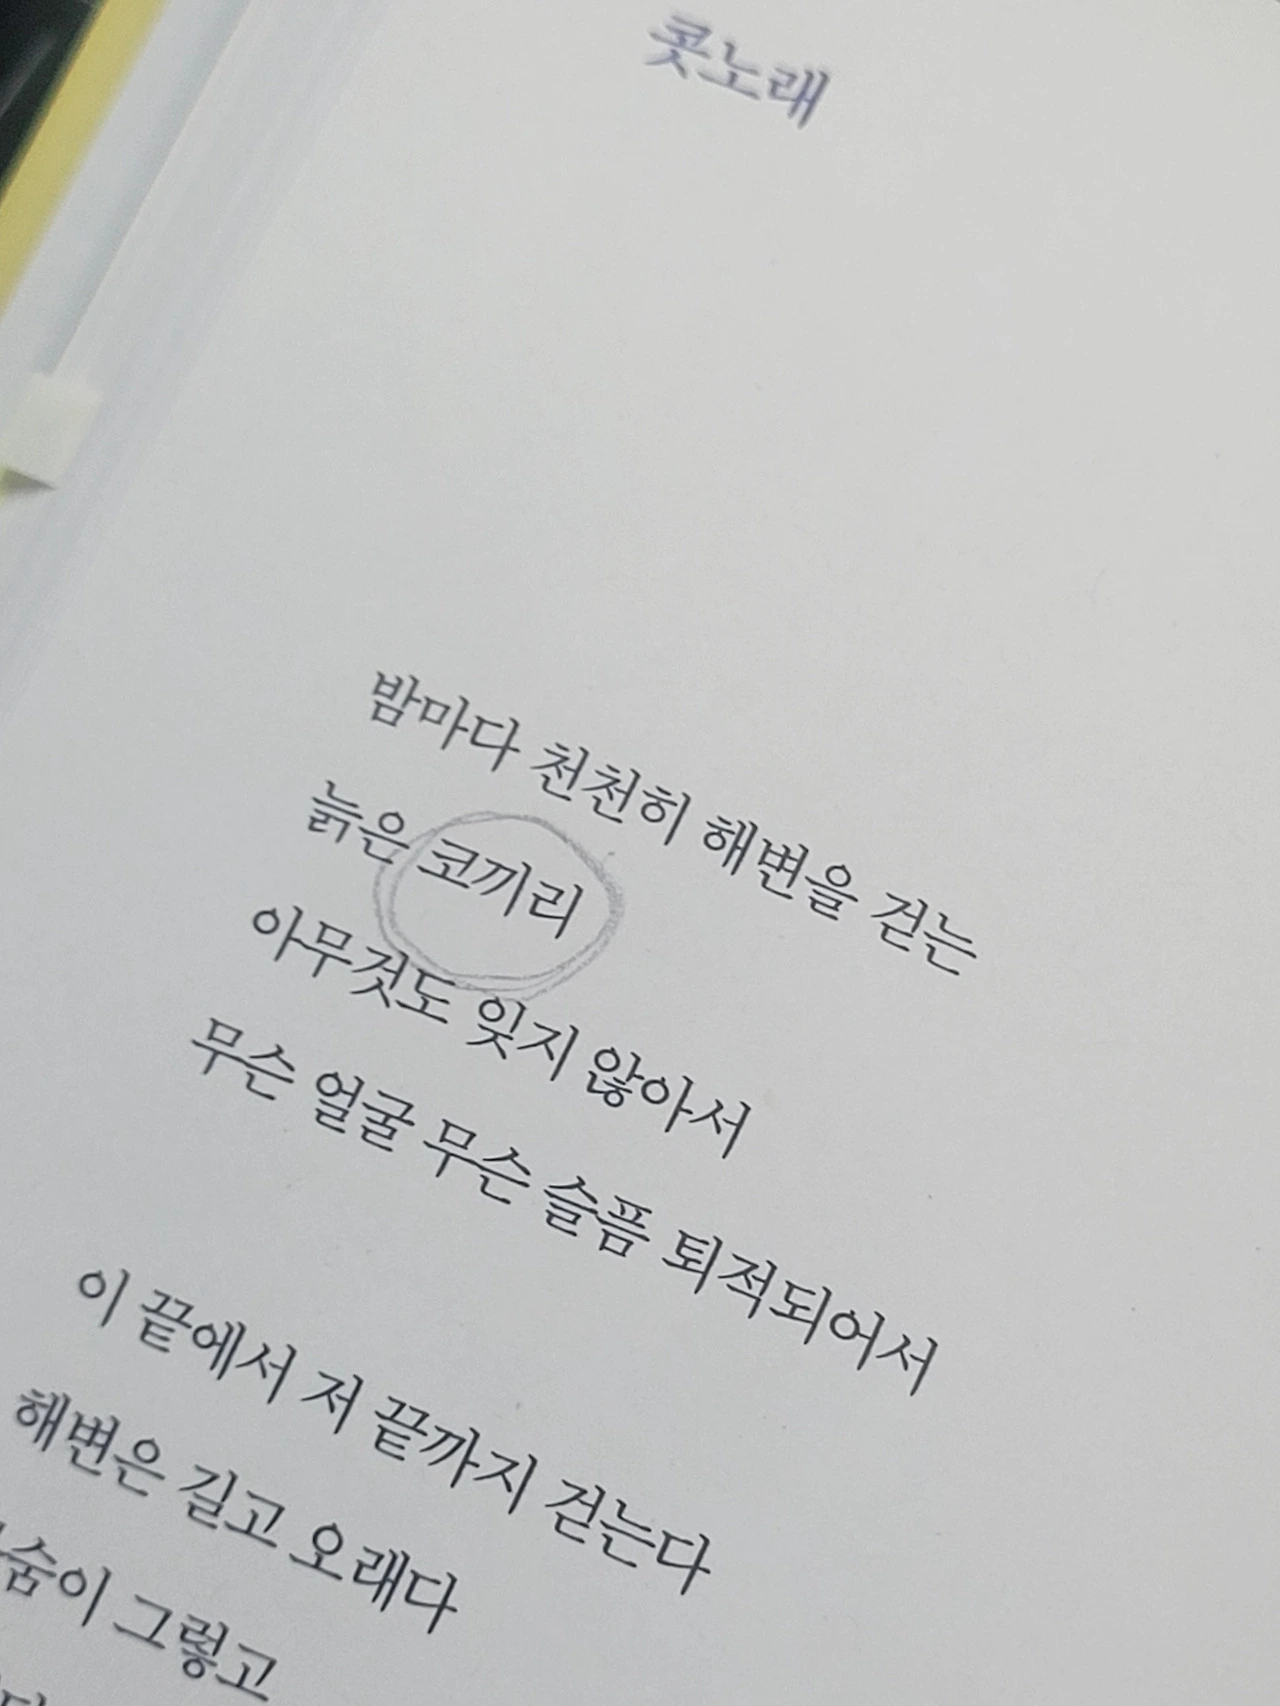 콧노래
밤마다 천천히 해변을 걷는
늙은 코끼리
아무것도 잊지 않아서
무슨 얼굴 무슨 슬픔 퇴적되어서
이 끝에서 저 끝까지 걷는다
해변은 길고 오래다
그렇고